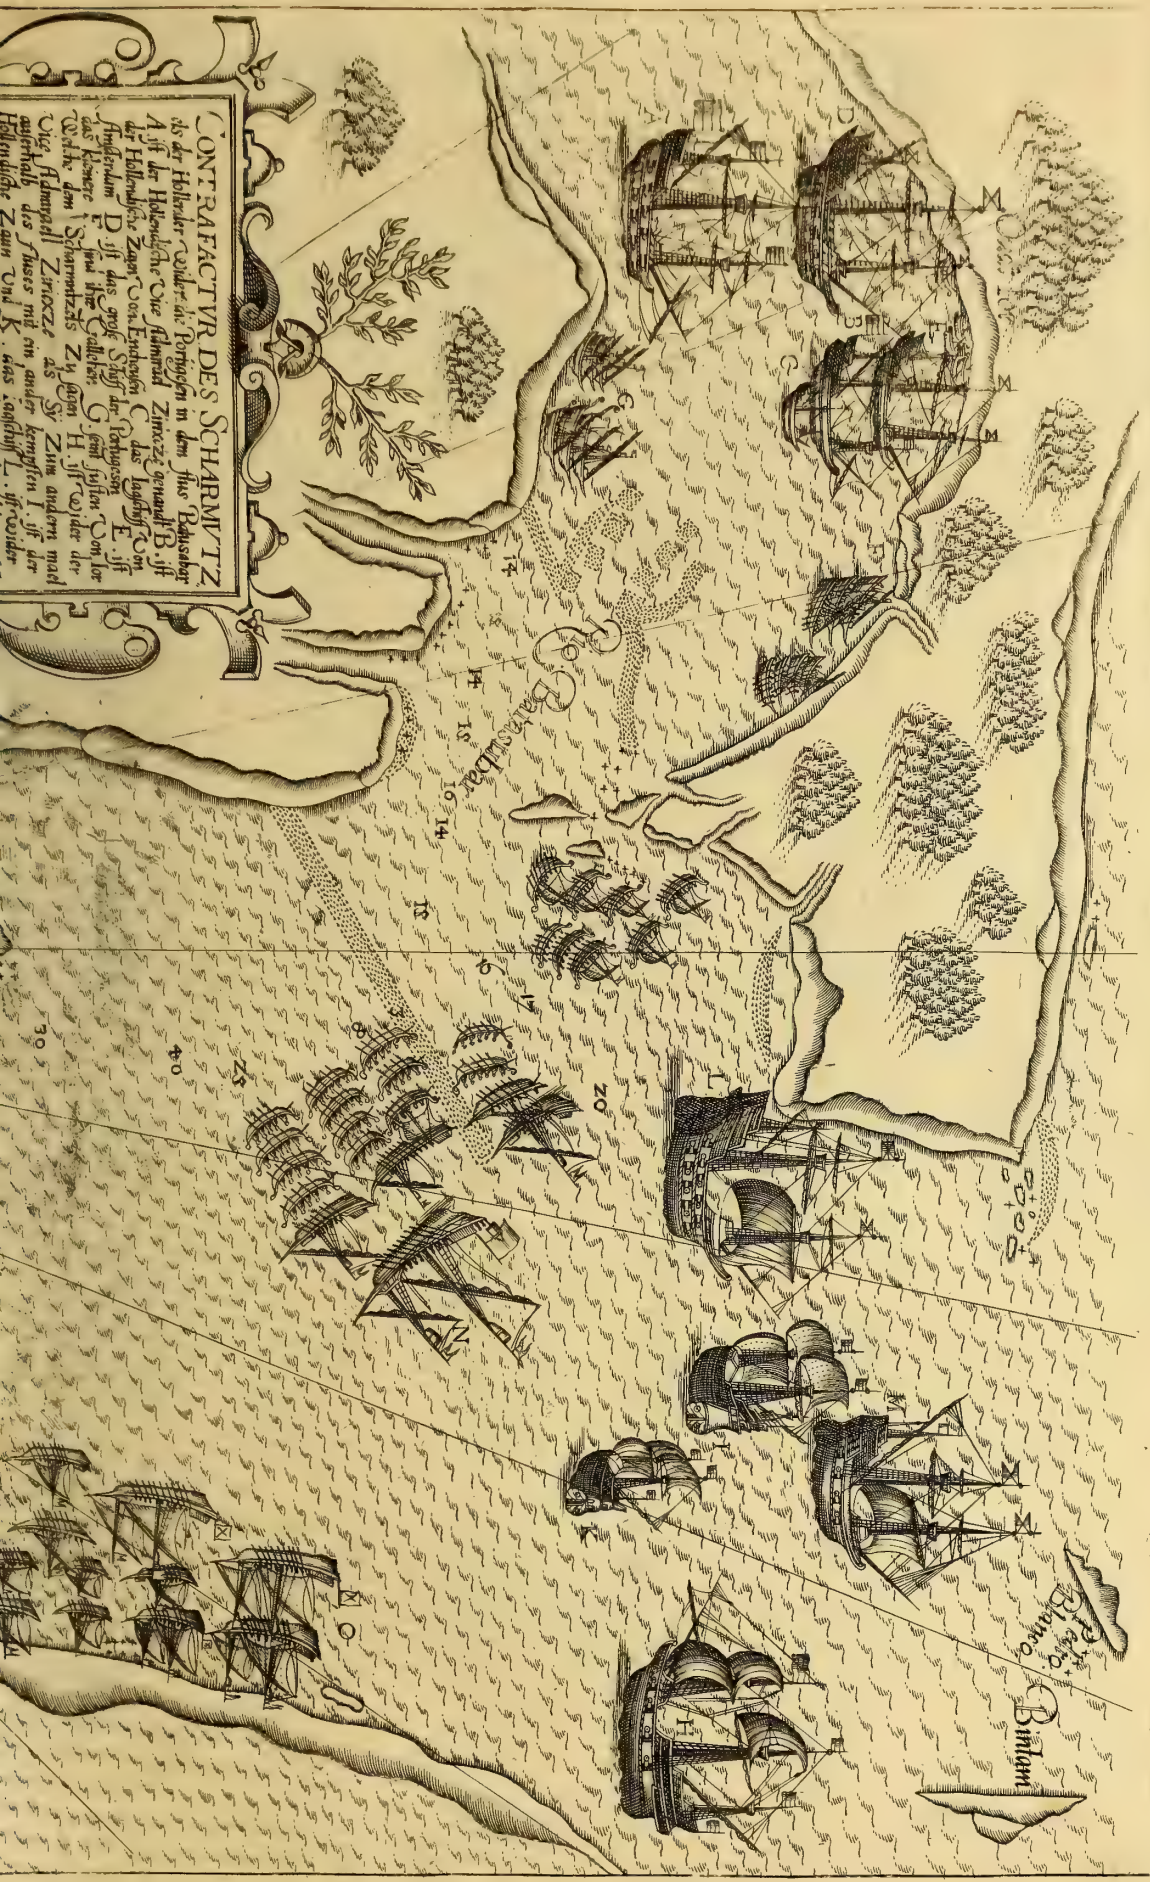 CONTRAFACTVR DES SCHARMVTZ
als der Hollender Wider die Portugesen in dem flus Batusabar
A ist der Hollendische Vice Admirad Zirickze genandt B ist
der Hollendische Zaun Von Enchuysen C das Iagschiff Von
Amsterdam D ist das gross Schiff der Portugesen E ist
das kleinere F sind ihre Galleyen G sind fusten Von Ior
Welche dem Scharmützels Zu sagen H ist Wider der
Vice Admiraell Ziricxze as Sy Zum andern mael
auserhalb des fluses mit ein ander kempften I ist der
Hollendische Zaun Und K das iagschiff L ist Wider
D
A
B
E
C
G
F
14
12
14
15
16
14
15
9
17
Rio Batusabar
3
8
20
25
40
30
L
M
I
K
N
O
H
Pedro
Blanco
Bintam